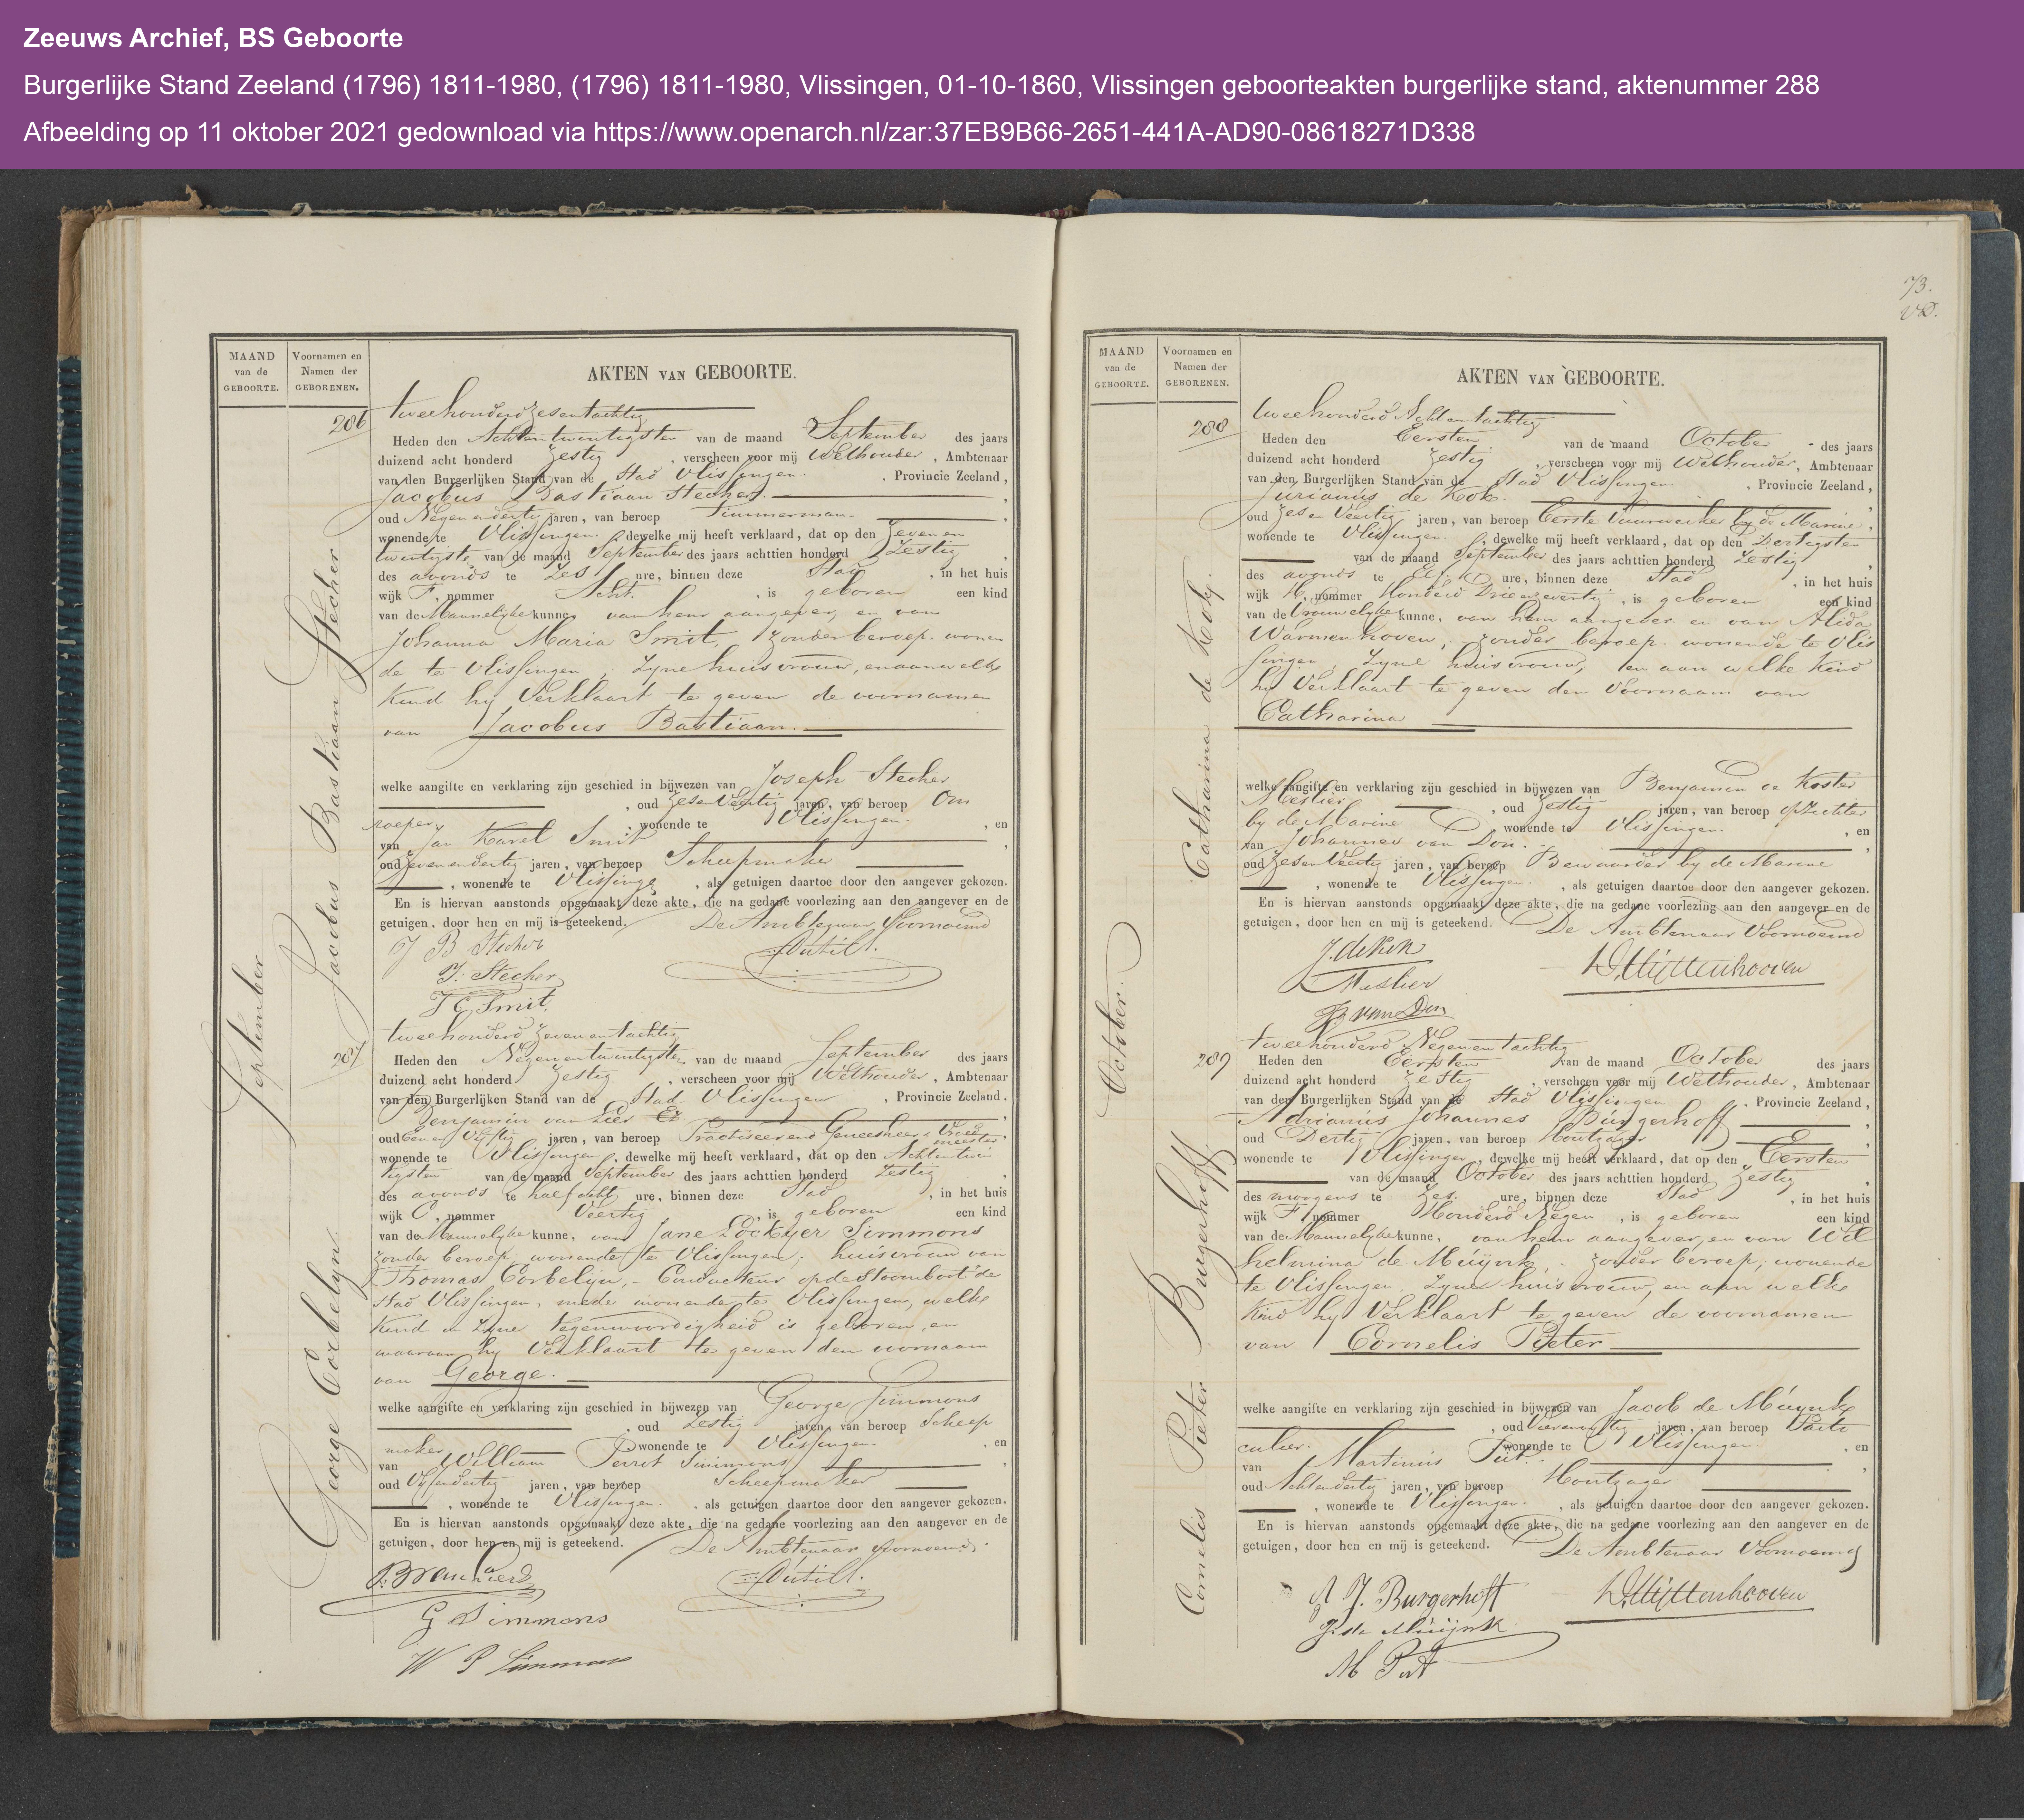 Zeeuws Archief, BS Geboorte
Burgerlijke Stand Zeeland (1796) 1811-1980, (1796) 1811-1980, Vlissingen, 01-10-1860, Vlissingen geboorteakten burgerlijke stand, aktenummer 288
Afbeelding op 11 oktober 2021 gedownload via https://www.openarch.nl/zar:37EB9B66-2651-441A-AD90-08618271D338
MAAND van de GEBOORTE.
Voornamen en Namen der GEBORENEN.
AKTEN VAN GEBOORTE.
September
286
Jacobus Bastiaan Stecher
tweehonderd zesentachtig
Heden den Achtentwintigsten van de maand September des jaars
duizend acht honderd Zestig, verscheen voor mij Wethouder, Ambtenaar
van den Burgerlijken Stand van de Stad Vlissingen, Provincie Zeeland,
Jacobus Bastiaan Stecher,
oud Negenendertig jaren, van beroep Timmerman
wonende te Vlissingen, dewelke mij heeft verklaard, dat op den Zevenen
twintigste van de maand September des jaars achttien honderd Zestig,
des avonds te Zes ure, binnen deze Stad, in het huis
wijk F, nommer Acht, is geboren een kind
van de Mannelyke kunne, van hem aangever, en van
Johanna Maria Smit, zonder beroep, wonen
de te Vlissingen, Zyne huisvrouw, en aan welke
Kind hy Verklaart te geven de voornamen
van Jacobus Bastiaan.
welke aangifte en verklaring zijn geschied in bijwezen van Joseph Stecher
, oud Zesenveertig jaren, van beroep Om
roeper, wonende te Vlissingen, en
van Jan Karel Smit,
oud Zevenendertig jaren, van beroep Scheepmaker
, wonende te Vlissinge, als getuigen daartoe door den aangever gekozen.
En is hiervan aanstonds opgemaakt deze akte, die na gedane voorlezing aan den aangever en de
getuigen, door hen en mij is geteekend. De Ambtenaar Voornoemd
J B Stecher
J. Stecher
J C Smit
287
George Corbelyn.
tweehonderd Zevenentachtig
Heden den Negenentwintigsten van de maand September des jaars
duizend acht honderd Zestig, verscheen voor mij Wethouder, Ambtenaar
van den Burgerlijken Stand van de Stad Vlissingen, Provincie Zeeland,
Benjamin van
oud Eenen Vyftig jaren, van beroep Practiseerend Geneesheer & Vroed
meester,
wonende te Vlissingen, dewelke mij heeft verklaard, dat op den Achtentwin
tigsten van de maand September des jaars achttien honderd Zestig,
des avonds te half acht ure, binnen deze Stad, in het huis
wijk C, nommer Veertig, is geboren een kind
van de Mannelyke kunne, van Jane Lockyer Simmons
zonder beroep, wonende te Vlissingen, huisvrouw van
Thomas Corbelijn, Conducteur op de Stoomboot de
Stad Vlissingen, mede wonende te Vlissingen, welke
Kind in Zyne tegenwoordigheid is geboren, en
waaraan hy Verklaart te geven den voornaam
van George.
welke aangifte en verklaring zijn geschied in bijwezen van George Simmons
, oud Zestig jaren, van beroep Scheep
maker wonende te Vlissingen, en
van William Perrot Simmons,
oud Vyfendertig jaren, van beroep Scheepmaker
, wonende te Vlissingen, als getuigen daartoe door den aangever gekozen.
En is hiervan aanstonds opgemaakt deze akte, die na gedane voorlezing aan den aangever en de
getuigen, door hen en mij is geteekend. De Ambtenaar voornoemd.
G Simmons
W P Simmons
73.
MAAND van de GEBOORTE.
Voornamen en Namen der GEBORENEN.
AKTEN VAN GEBOORTE.
October.
288
Catharina de Kok.
tweehonderd Achtentachtig
Heden den Eersten van de maand October des jaars
duizend acht honderd Zestig, verscheen voor mij Wethouder, Ambtenaar
van den Burgerlijken Stand van de Stad Vlissingen, Provincie Zeeland,
Jurianus de Kok.
oud Zesen Veertig jaren, van beroep Eerste Vuurwerker by de Marine,
wonende te Vlissingen, dewelke mij heeft verklaard, dat op den Dertigsten
van de maand September des jaars achttien honderd Zestig,
des avonds te ure, binnen deze Stad, in het huis
wijk nommer Honderd Drieenzeventig, is geboren een kind
van de Vrouwelyke kunne, van hem aangever en van Alida
Warmenhoven, zonder beroep, wonende te Vlis
singen, Zyne huisvrouw, en aan welke Kind
hy Verklaart te geven den Voornaam van
Catharina
welke aangifte en verklaring zijn geschied in bijwezen van Benjamin de Koster
Mestier, oud Zestig jaren, van beroep Opzichter
by de Marine wonende te Vlissingen, en
van Johannes van Don.
oud Zesenveertig jaren, van beroep Bewaarder by de Marine
, wonende te Vlissingen, als getuigen daartoe door den aangever gekozen.
En is hiervan aanstonds opgemaakt deze akte, die na gedane voorlezing aan den aangever en de
getuigen, door hen en mij is geteekend. De Ambtenaar Voornoemd
J. de Kok
Mestier
van Don
289
Cornelis Pieter Burgerhoff
tweehonderd Negenentachtig
Heden den Eersten van de maand October des jaars
duizend acht honderd Zestig, verscheen voor mij Wethouder, Ambtenaar
van den Burgerlijken Stand van de Stad Vlissingen, Provincie Zeeland,
Adrianus Johannes Burgerhoff
oud Dertig jaren, van beroep Houtzager
wonende te Vlissingen, dewelke mij heeft verklaard, dat op den Eersten
van de maand October des jaars achttien honderd Zestig,
des morgens te Zes ure, binnen deze Stad, in het huis
wijk F nommer Honderd Negen, is geboren een kind
van de Mannelyke kunne, van hem aangever, en van Wil
helmina de Muijnk, zonder beroep, wonende
te Vlissingen Zyne huisvrouw, en aan welke
Kind hy Verklaart te geven de voornamen
van Cornelis Pieter
welke aangifte en verklaring zijn geschied in bijwezen van Jacob de Muynk
, oud jaren, van beroep Parti
culier. wonende te Vlissingen, en
van Martinus
oud Achtendertig jaren, van beroep Houtzager
, wonende te Vlissingen, als getuigen daartoe door den aangever gekozen.
En is hiervan aanstonds opgemaakt deze akte, die na gedane voorlezing aan den aangever en de
getuigen, door hen en mij is geteekend. De Ambtenaar Voornoemd
A J. Burgerhoff
J. de Muijnk